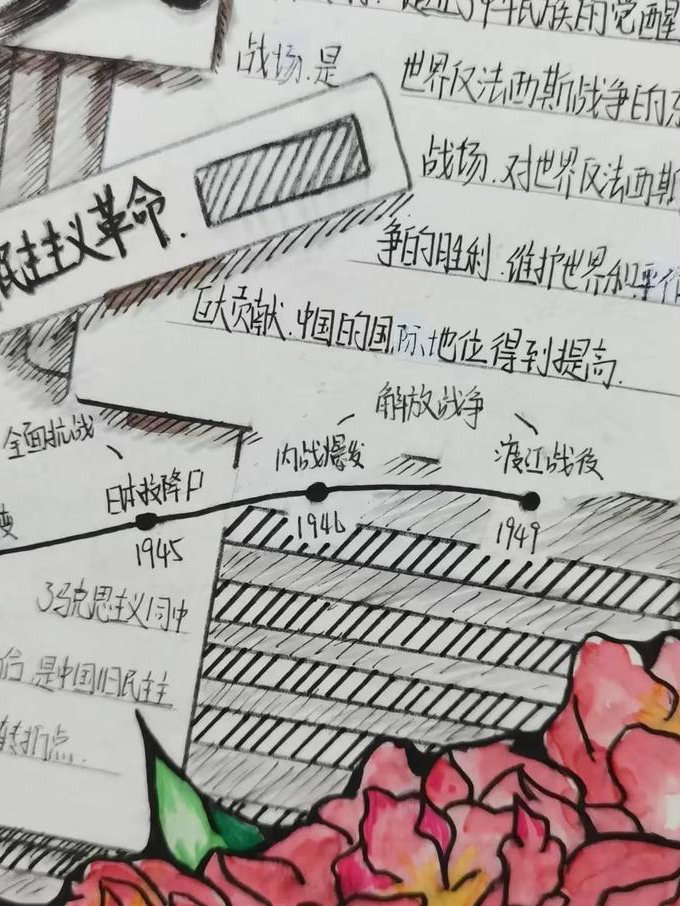 中华民族的觉醒
战场.是 世界反法西斯战争的东
战场.对世界反法西斯
争的胜利.维护世界和平作
巨大贡献.中国的国际地位得到提高.
民主主义革命.
解放战争
全面抗战
日本投降
内战爆发
渡江战役
变
1945
1946
1949
了马克思主义同中
是中国旧民主
转折点.